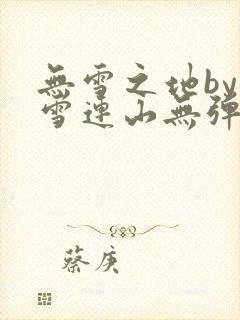 無雪之地by
雪連山無彈
蔡庚